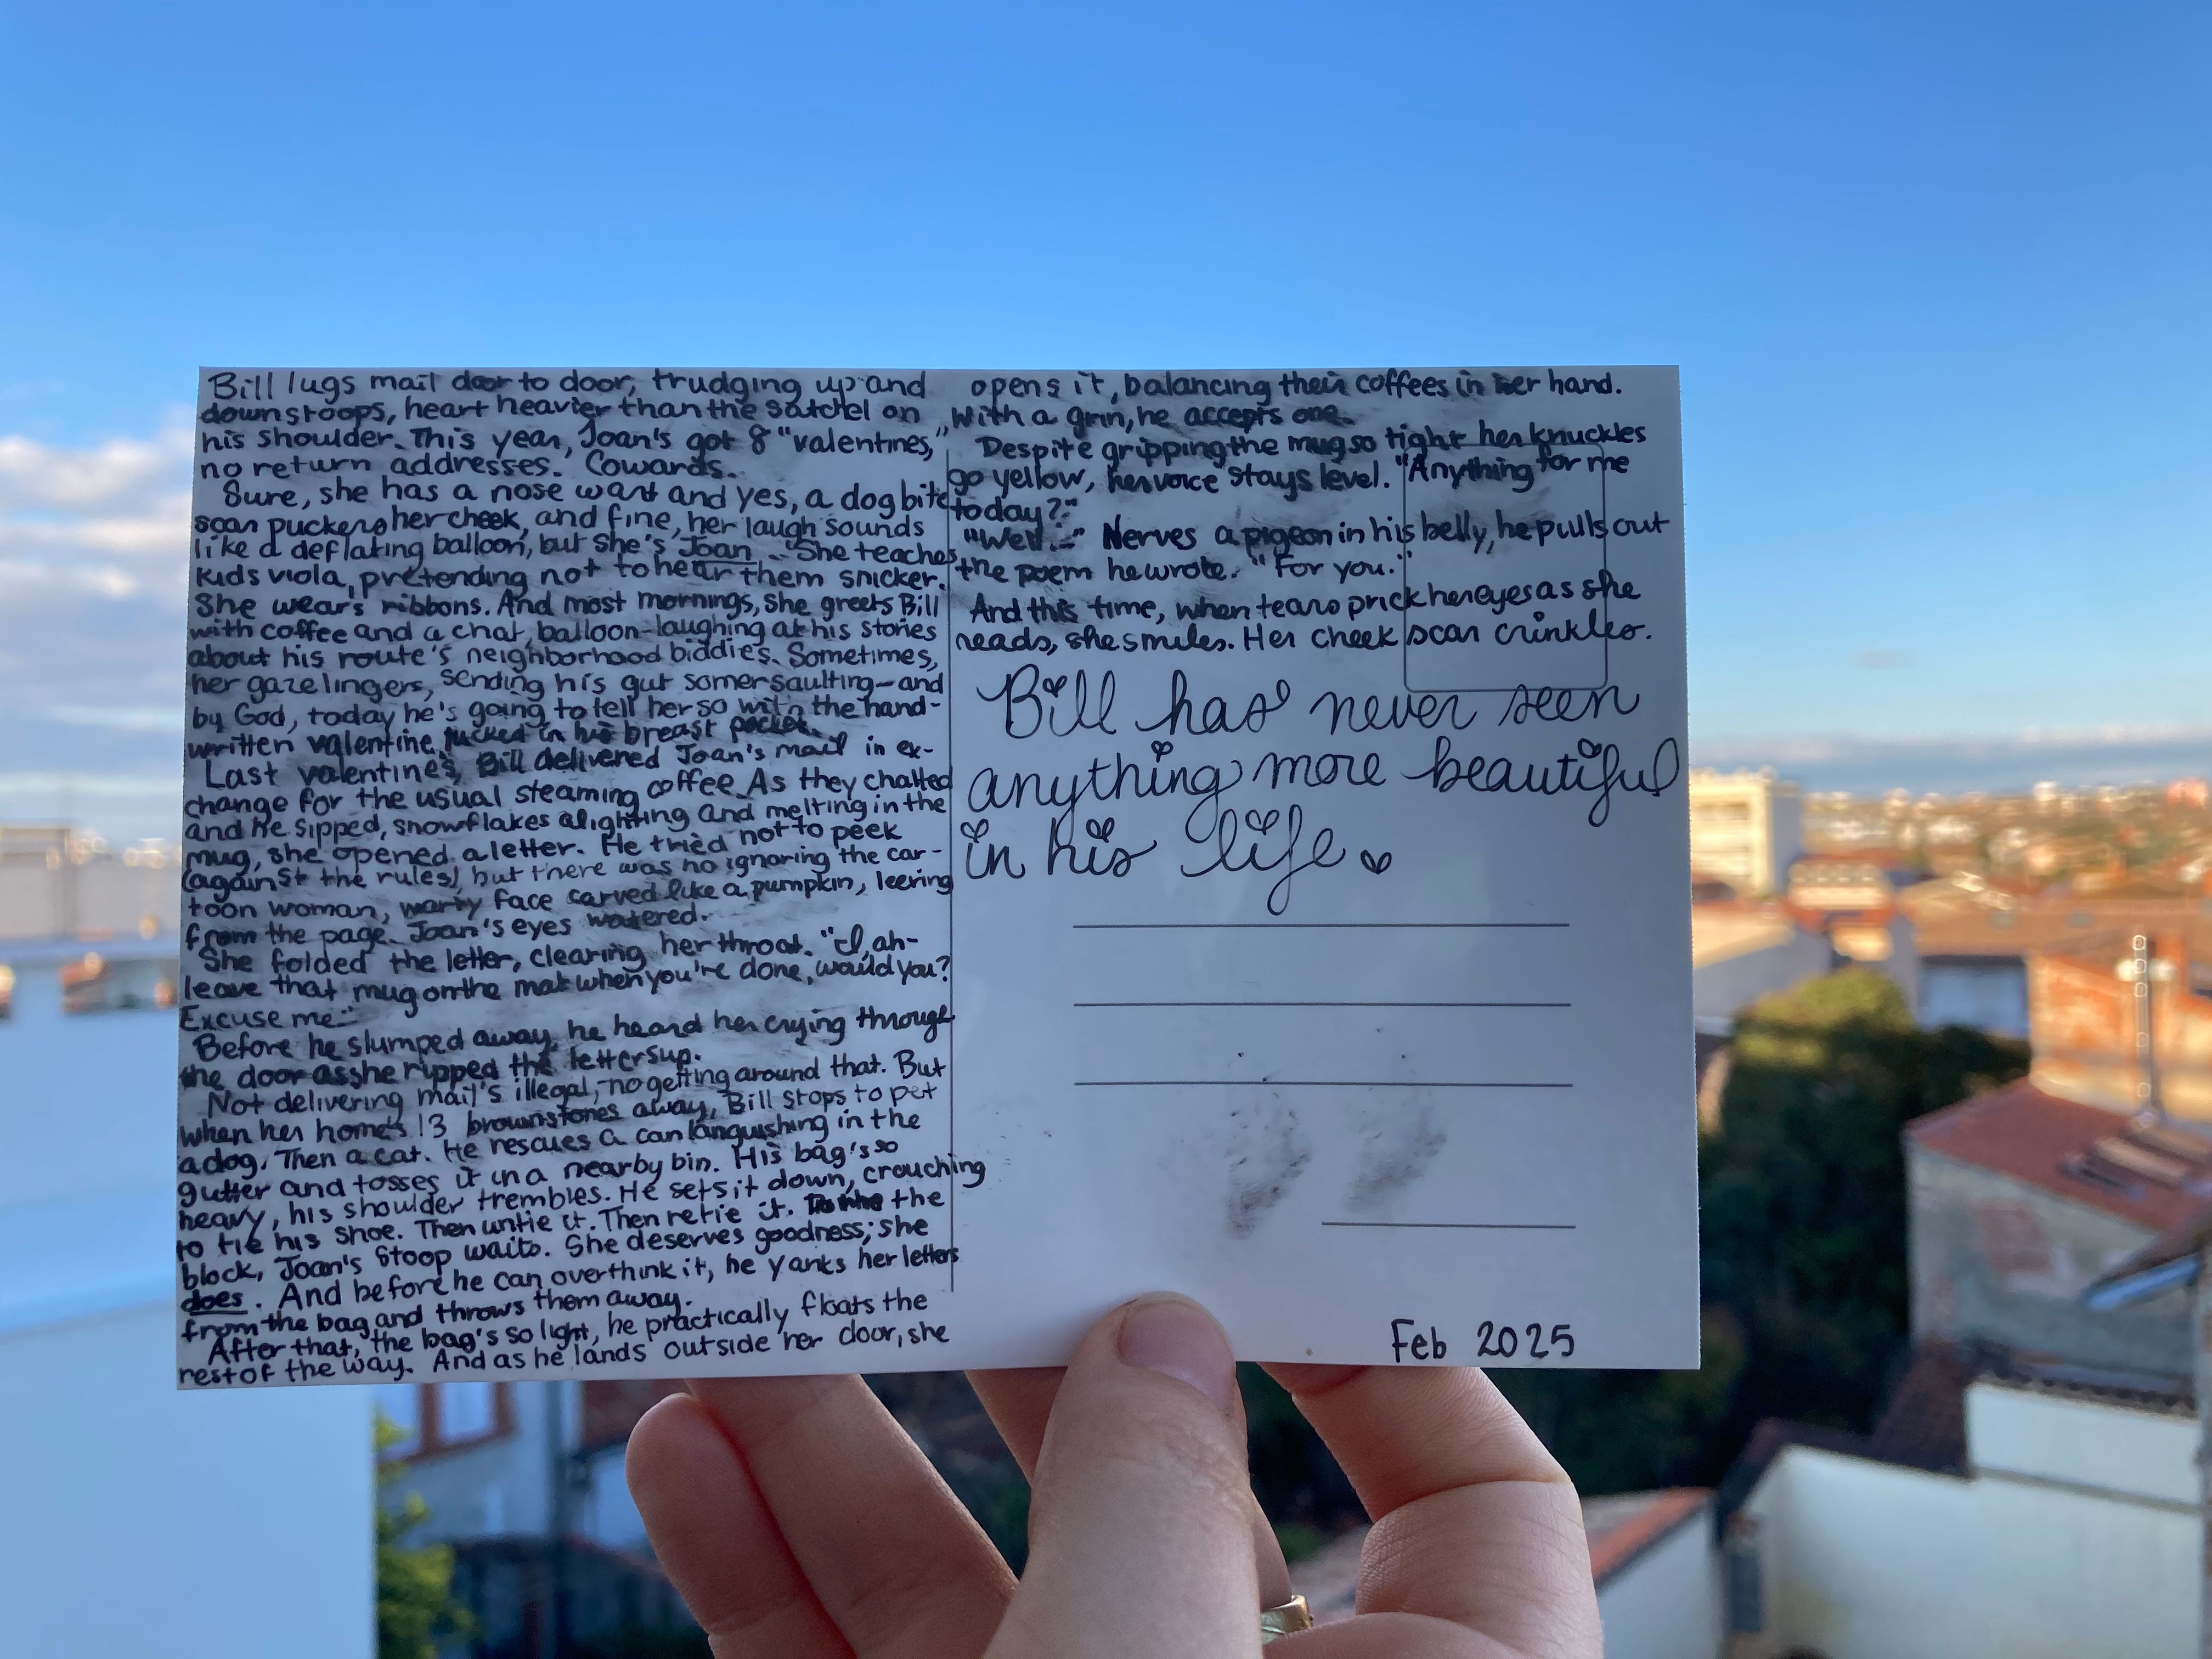 Bill lugs mail door to door, trudging up and
down stoops, heart heavier than the satchel on
his shoulder. This year, Joan's got 8 "valentines,"
no return addresses. Cowards.
Sure, she has a nose wart and yes, a dog bite
scar puckers her cheek, and fine, her laugh sounds
like a deflating balloon, but she's Joan. She teaches
kids viola, pretending not to hear them snicker.
She wears ribbons. And most mornings, she greets Bill
with coffee and a chat, balloon-laughing at his stories
about his route's neighborhood biddies. Sometimes,
her gaze lingers, sending his gut somersaulting—and
by God, today he's going to tell her so with the hand-
written valentine tucked in his breast pocket.
Last valentine's, Bill delivered Joan's mail in ex-
change for the usual steaming coffee. As they chatted
and he sipped, snowflakes alighting and melting in the
mug, she opened a letter. He tried not to peek
(against the rules) but there was no ignoring the car-
toon woman, warty face carved like a pumpkin, leering
from the page. Joan's eyes watered.
She folded the letter, clearing her throat. "I, ah-
leave that mug on the mat when you're done, would you?
Excuse me-"
Before he slumped away, he heard her crying through
the door as she ripped the letters up.
Not delivering mail's illegal, no getting around that. But
when her home's 13 brownstones away, Bill stops to pet
a dog. Then a cat. He rescues a can languishing in the
gutter and tosses it in a nearby bin. His bag's so
heavy, his shoulder trembles. He sets it down, crouching
to tie his shoe. Then untie it. Then retie it. the
block, Joan's stoop waits. She deserves goodness; she
does. And before he can overthink it, he yanks her letters
from the bag and throws them away.
After that, the bag's so light, he practically floats the
rest of the way. And as he lands outside her door, she
opens it, balancing their coffees in her hand.
With a grin, he accepts one.
Despite gripping the mug so tight her knuckles
go yellow, her voice stays level. "Anything for me
today?"
"Well..." Nerves a pigeon in his belly, he pulls out
the poem he wrote. "For you."
And this time, when tears prick her eyes as she
reads, she smiles. Her cheek scar crinkles.
Bill has never seen
anything more beautiful
in his life.
Feb 2025